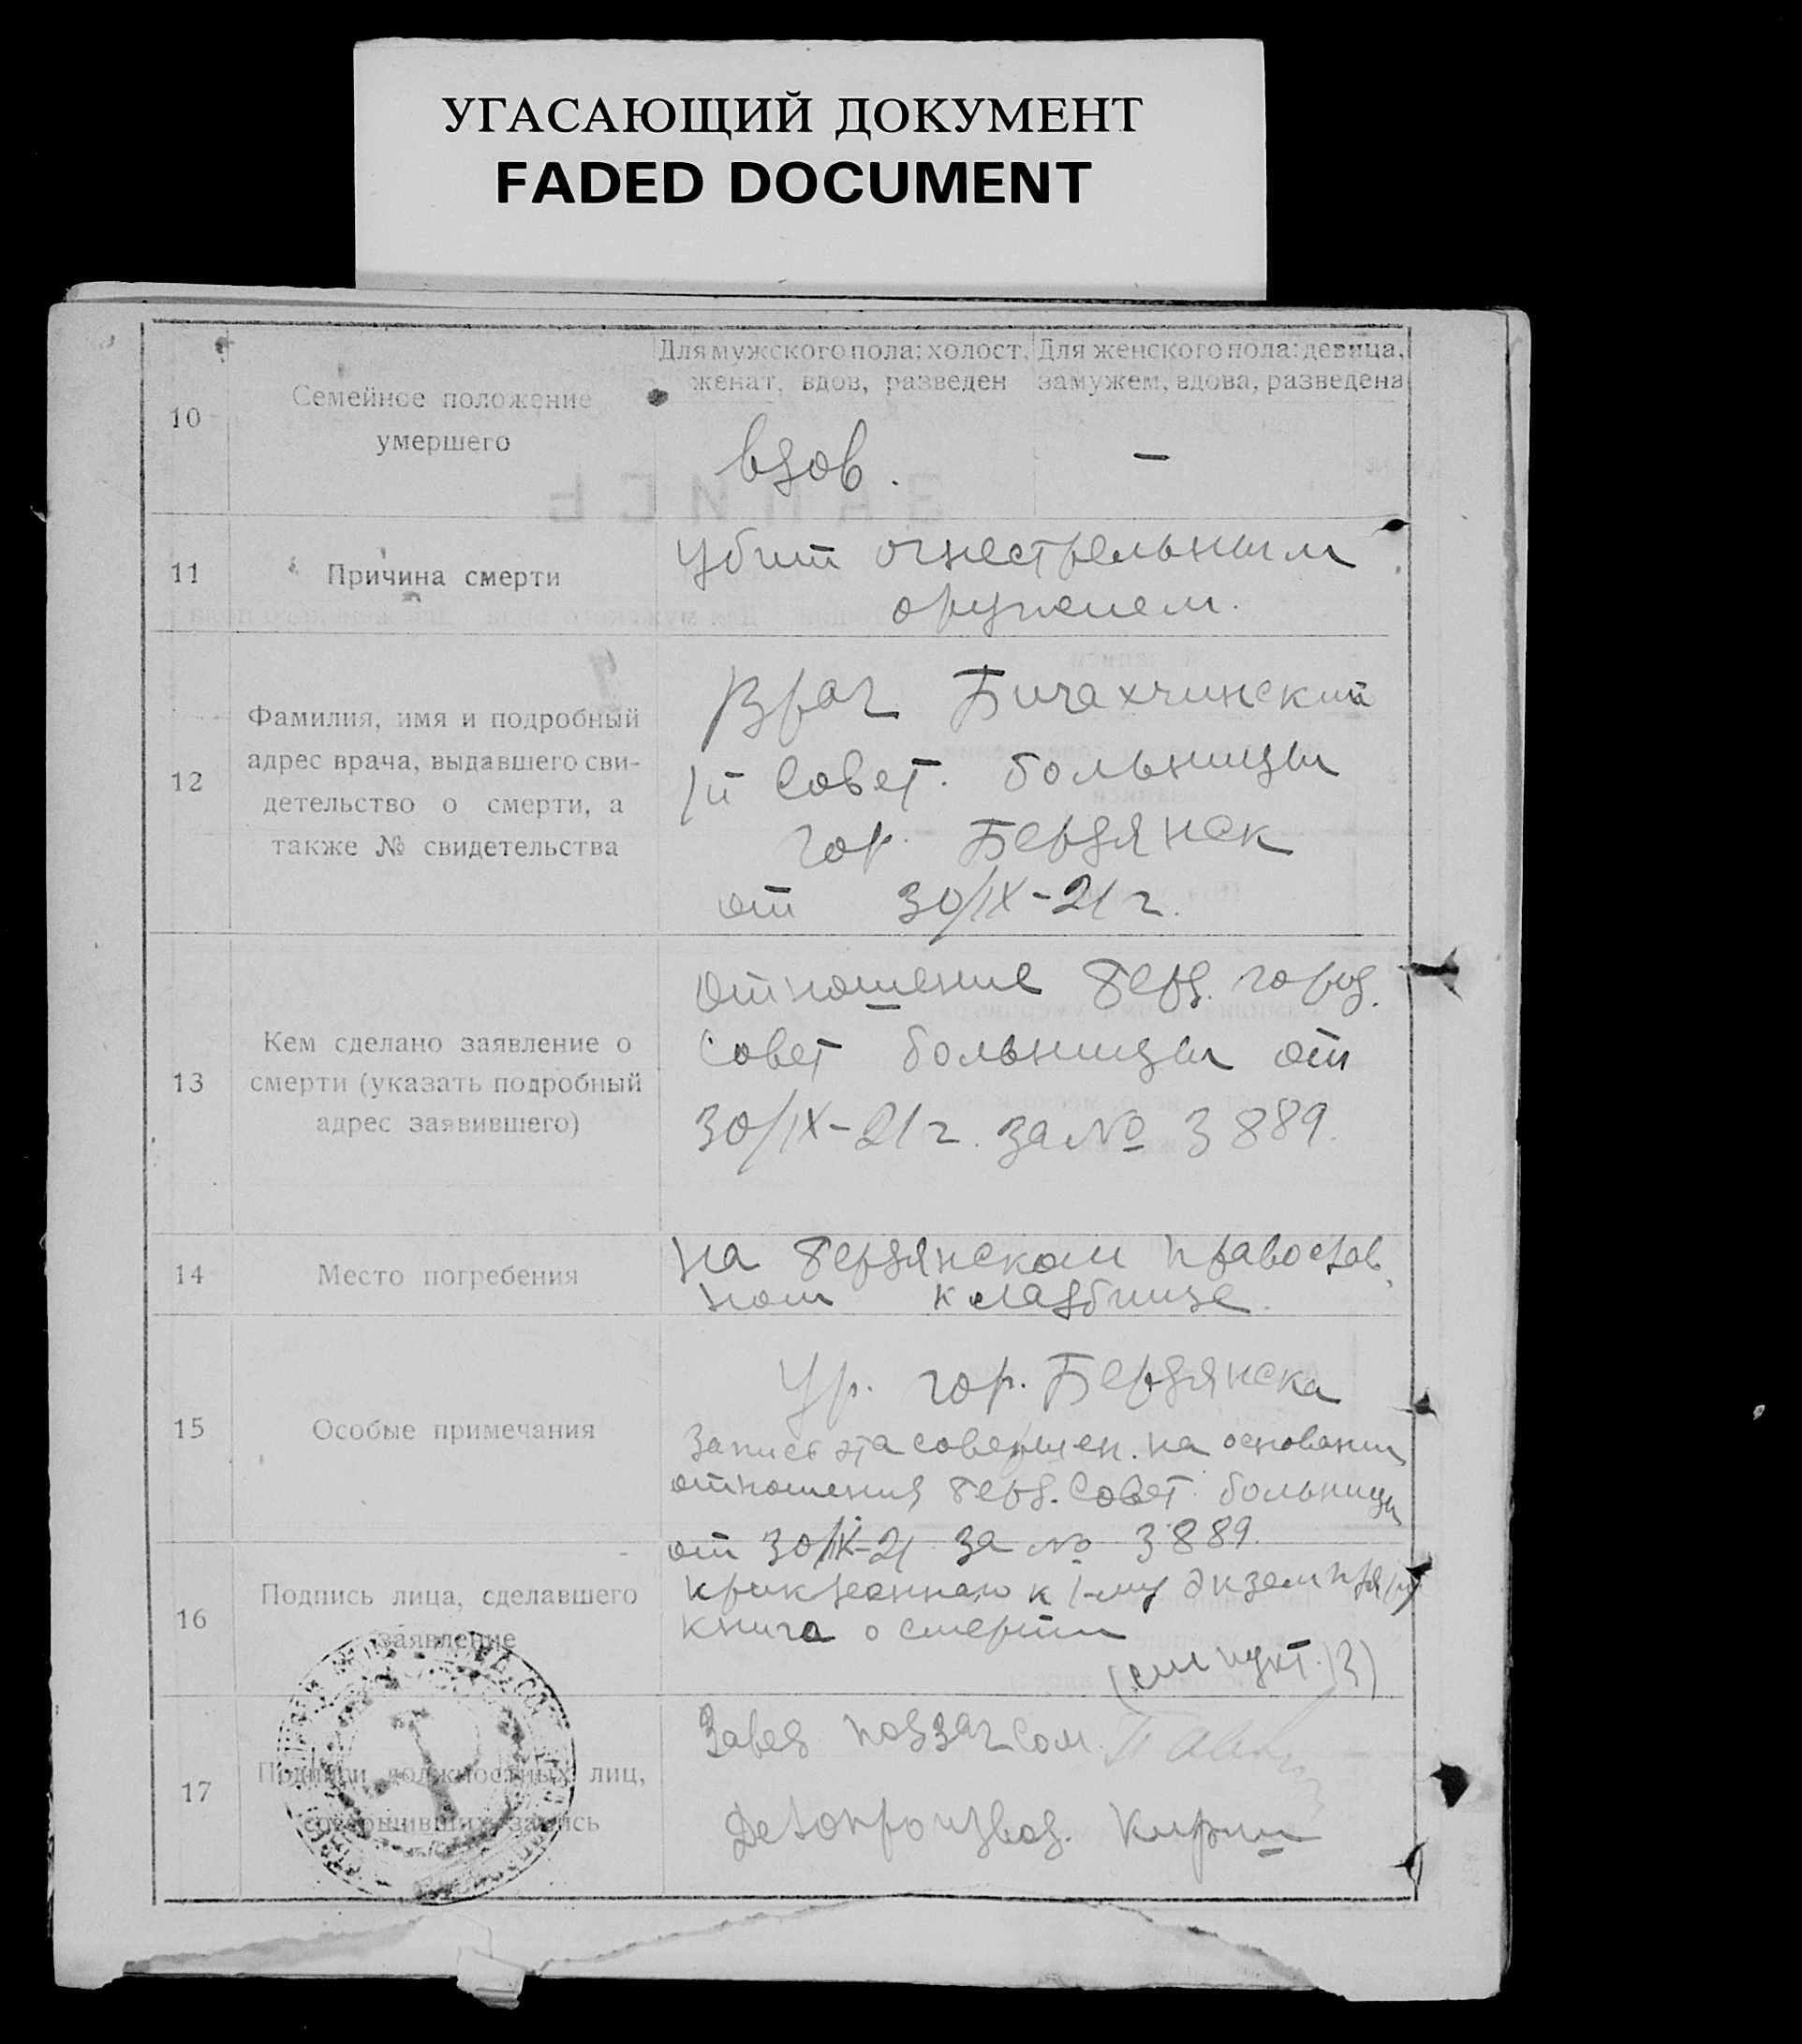 УГАСАЮЩИЙ ДОКУМЕНТ
FADED DOCUMENT
Для мужского пола: холост, женат, вдов, разведен
Для женского пола: девица, замужем, вдова, разведена
10
Семейное положение
умершего
вдов.
—
11
Причина смерти
Убит огнестрельным
оружием.
12
Фамилия, имя и подробный
адрес врача, выдавшего сви-
детельство о смерти, а
также № свидетельства
Врач
1й Совет. больницы
гор. Бердянск
от 30/IX-21 г.
13
Кем сделано заявление о
смерти (указать подробный
адрес заявившего)
Отношение Берд. город.
Совет больницы от
30/IX-21 г. за № 3889.
14
Место погребения
На Бердянском православ
ном кладбище.
15
Особые примечания
Ур. гор. Бердянска
Запись эта совершен. на основании
отношения Берд. Совет. больницы
от 30/IX-21 за № 3889.
16
Подпись лица, сделавшего
заявление
к 1-му экземпляру
книга о смерти
(см пункт. 13)
17
Подписи должностных лиц,
совершивших запись
Завед подзагсом.
Делопроизвод.